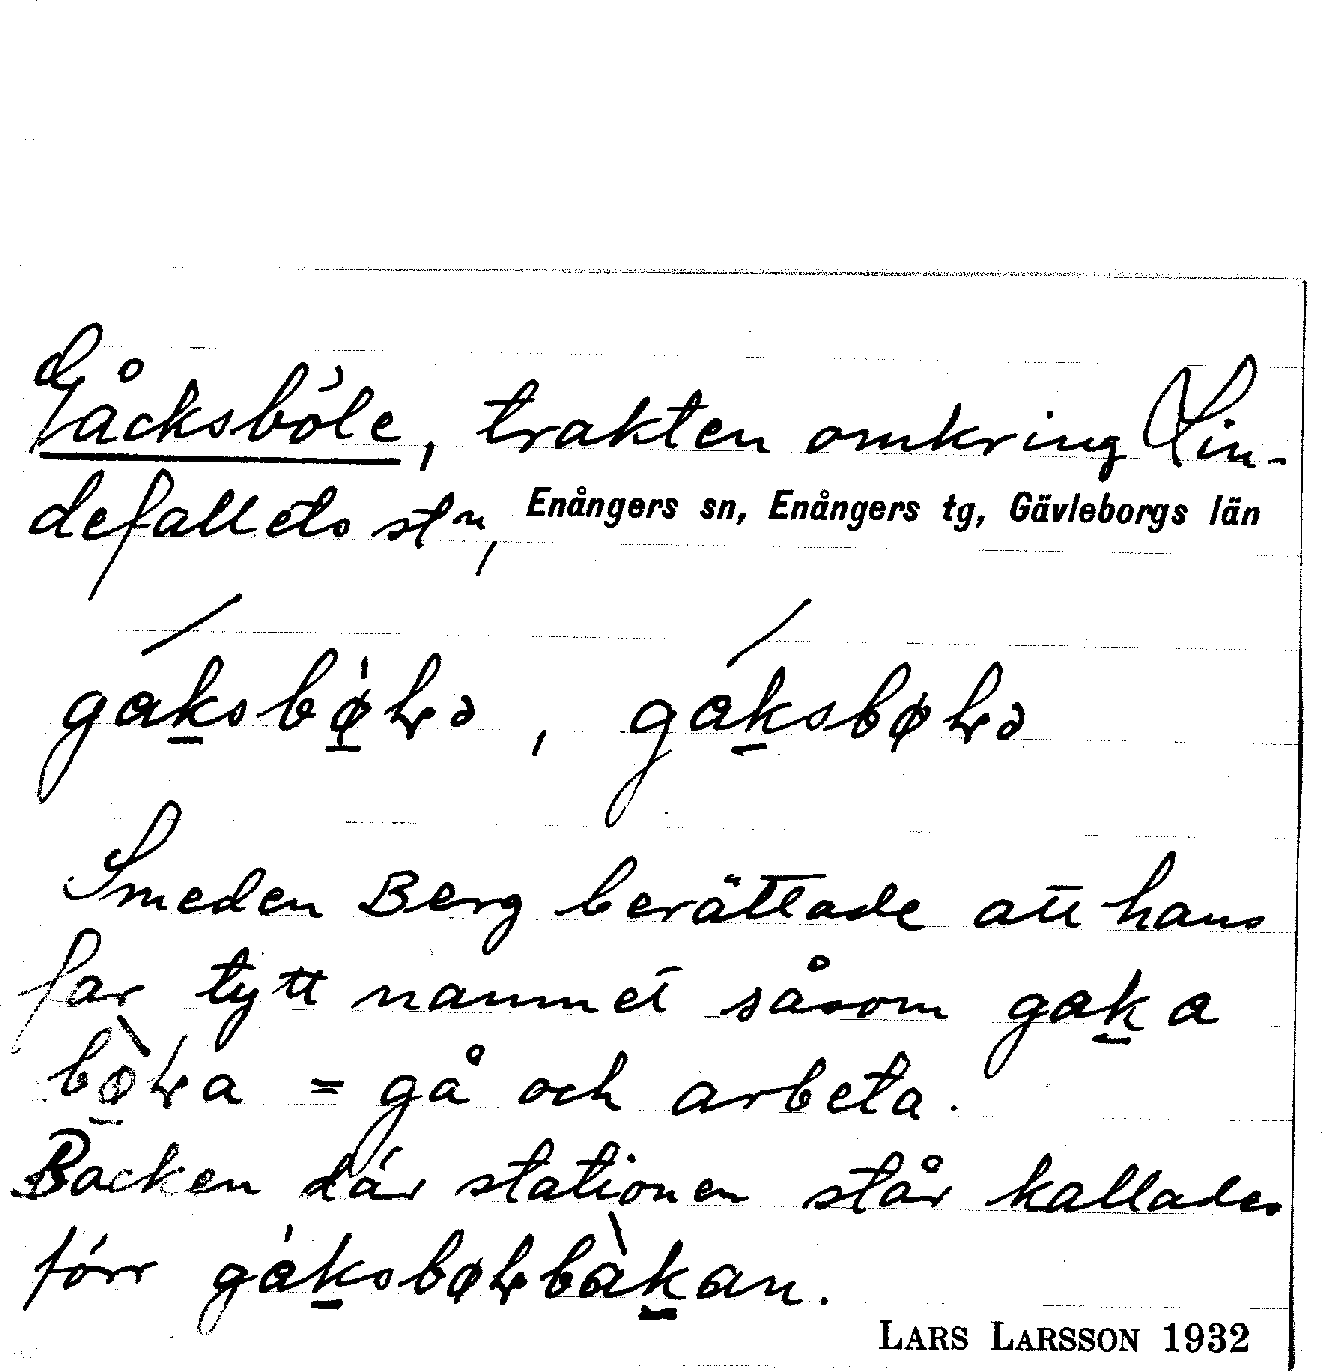 Gåcksböle, trakten omkring Lin-
defallets stn, Enångers sn, Enångers tg, Gävleborgs län
gaksbø̀ɬə, gaksbøɬə
Smeden Berg berättade att hans
far tytt namnet såsom gak a
bø̀ɬa = gå och arbeta.
Backen där stationen står kallades
förr gáksbøɬbàkan.
LARS LARSSON 1932